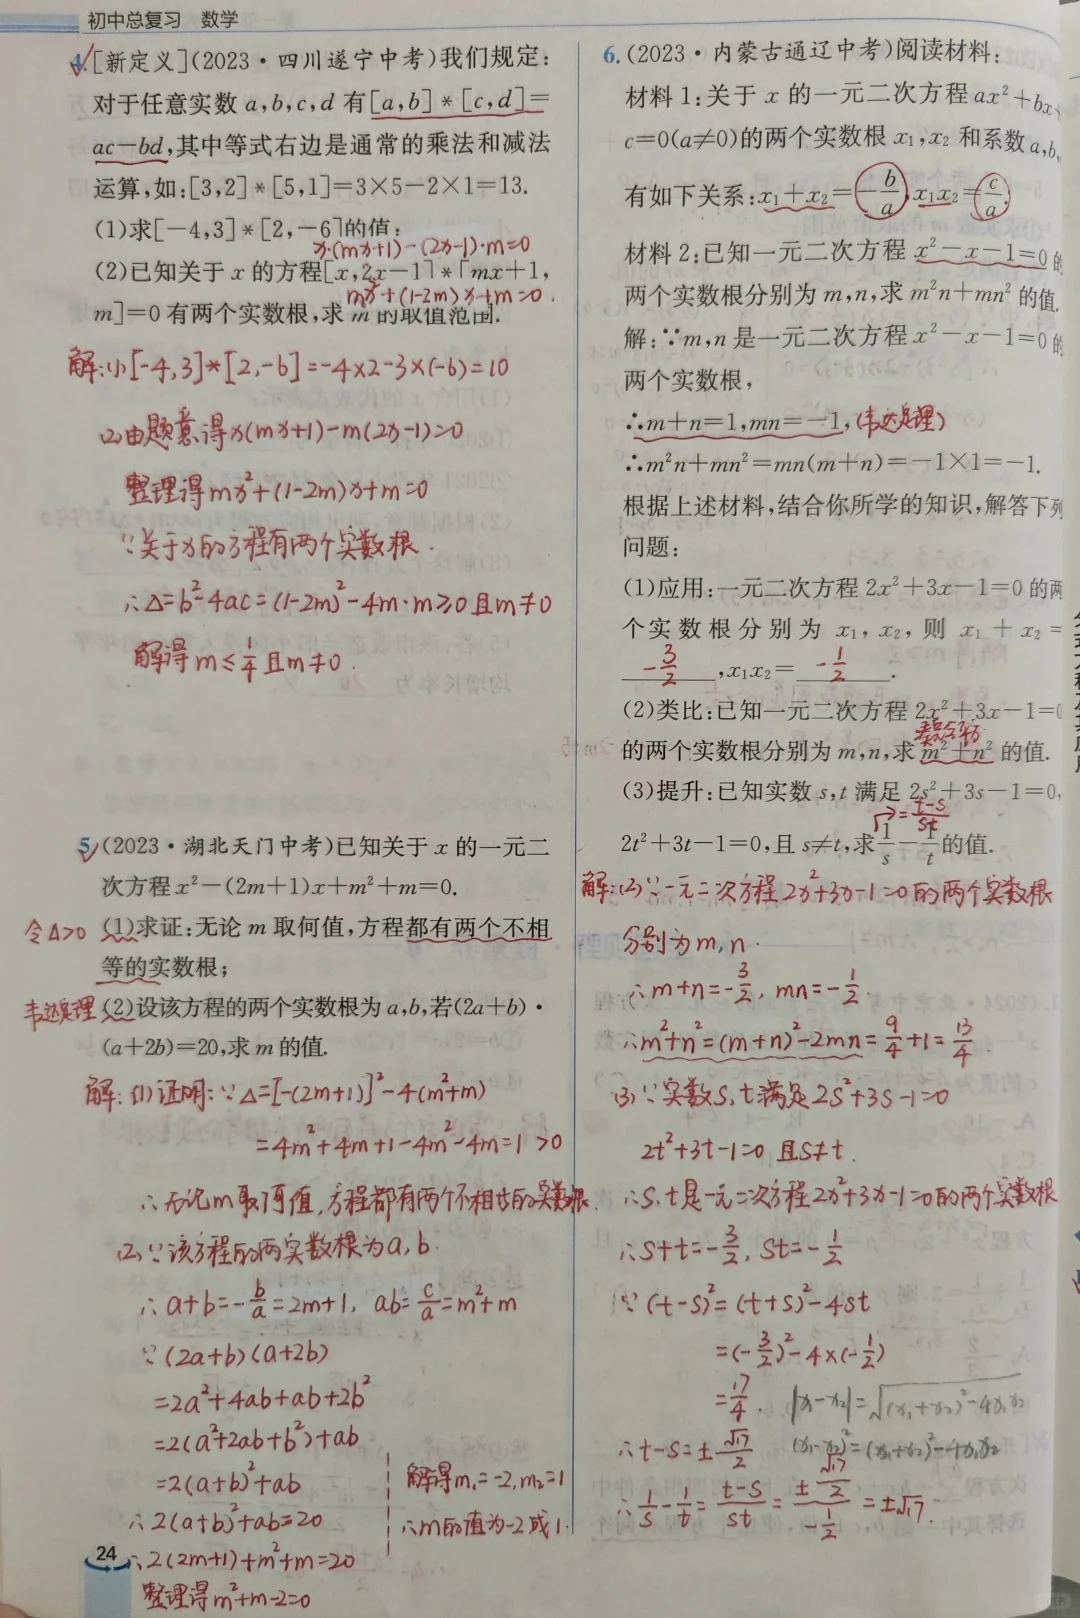 初中总复习 数学
4.[新定义](2023·四川遂宁中考)我们规定:
对于任意实数a,b,c,d有[a,b]*[c,d]=
ac-bd,其中等式右边是通常的乘法和减法
运算,如:[3,2]*[5,1]=3×5-2×1=13.
(1)求[-4,3]*[2,-6]的值;
x·(mx+1)-(2x-1)·m=0
(2)已知关于x的方程[x,2x-1]*[mx+1,
mx²+(1-2m)x+m=0.
m]=0有两个实数根,求m的取值范围.
解:(1)[-4,3]*[2,-6]=-4×2-3×(-6)=10
(2)由题意得x(mx+1)-m(2x-1)=0
整理得mx²+(1-2m)x+m=0
∵关于x的方程有两个实数根.
∴Δ=b²-4ac=(1-2m)²-4m·m≥0且m≠0
解得m≤1/4且m≠0.
5.(2023·湖北天门中考)已知关于x的一元二
次方程x²-(2m+1)x+m²+m=0.
令Δ>0 (1)求证:无论m取何值,方程都有两个不相
等的实数根;
韦达定理 (2)设该方程的两个实数根为a,b,若(2a+b)·
(a+2b)=20,求m的值.
解:(1)证明:∵Δ=[-(2m+1)]²-4(m²+m)
=4m²+4m+1-4m²-4m=1>0
∴无论m取何值,方程都有两个不相等的实数根.
(2)∵该方程的两实数根为a,b.
∴a+b=-b/a=2m+1, ab=c/a=m²+m
∵(2a+b)(a+2b)
=2a²+4ab+ab+2b²
=2(a²+2ab+b²)+ab
=2(a+b)²+ab
∴2(a+b)²+ab=20
∴2(2m+1)+m²+m=20
整理得m²+m-2=0
解得m₁=-2,m₂=1
∴m的值为-2或1.
24
6.(2023·内蒙古通辽中考)阅读材料:
材料1:关于x的一元二次方程ax²+bx+
c=0(a≠0)的两个实数根x₁,x₂和系数a,b,
有如下关系:x₁+x₂=-b/a,x₁x₂=c/a.
材料2:已知一元二次方程x²-x-1=0的
两个实数根分别为m,n,求m²n+mn²的值.
解:∵m,n是一元二次方程x²-x-1=0的
两个实数根,
∴m+n=1,mn=-1,(韦达定理)
∴m²n+mn²=mn(m+n)=-1×1=-1.
根据上述材料,结合你所学的知识,解答下列
问题:
(1)应用:一元二次方程2x²+3x-1=0的两
个实数根分别为x₁,x₂,则x₁+x₂=
-3/2,x₁x₂=-1/2.
(2)类比:已知一元二次方程2x²+3x-1=0
的两个实数根分别为m,n,求m²+n²的值.
(3)提升:已知实数s,t满足2s²+3s-1=0,
=t-s/st
2t²+3t-1=0,且s≠t,求1/s-1/t的值.
解:(2)∵一元二次方程2x²+3x-1=0的两个实数根
分别为m,n.
∴m+n=-3/2, mn=-1/2.
∴m²+n²=(m+n)²-2mn=9/4+1=13/4.
(3)∵实数s,t满足2s²+3s-1=0
2t²+3t-1=0 且s≠t.
∴s,t是一元二次方程2x²+3x-1=0的两个实数根
∴s+t=-3/2, st=-1/2
∵(t-s)²=(t+s)²-4st
=(-3/2)²-4×(-1/2)
=17/4. |x₁-x₂|=√(x₁+x₂)²-4x₁x₂
∴t-s=±√17/2 (x₁-x₂)²=(x₁+x₂)²-4x₁x₂
∴1/s-1/t=t-s/st=±√17/2/-1/2=±√17.